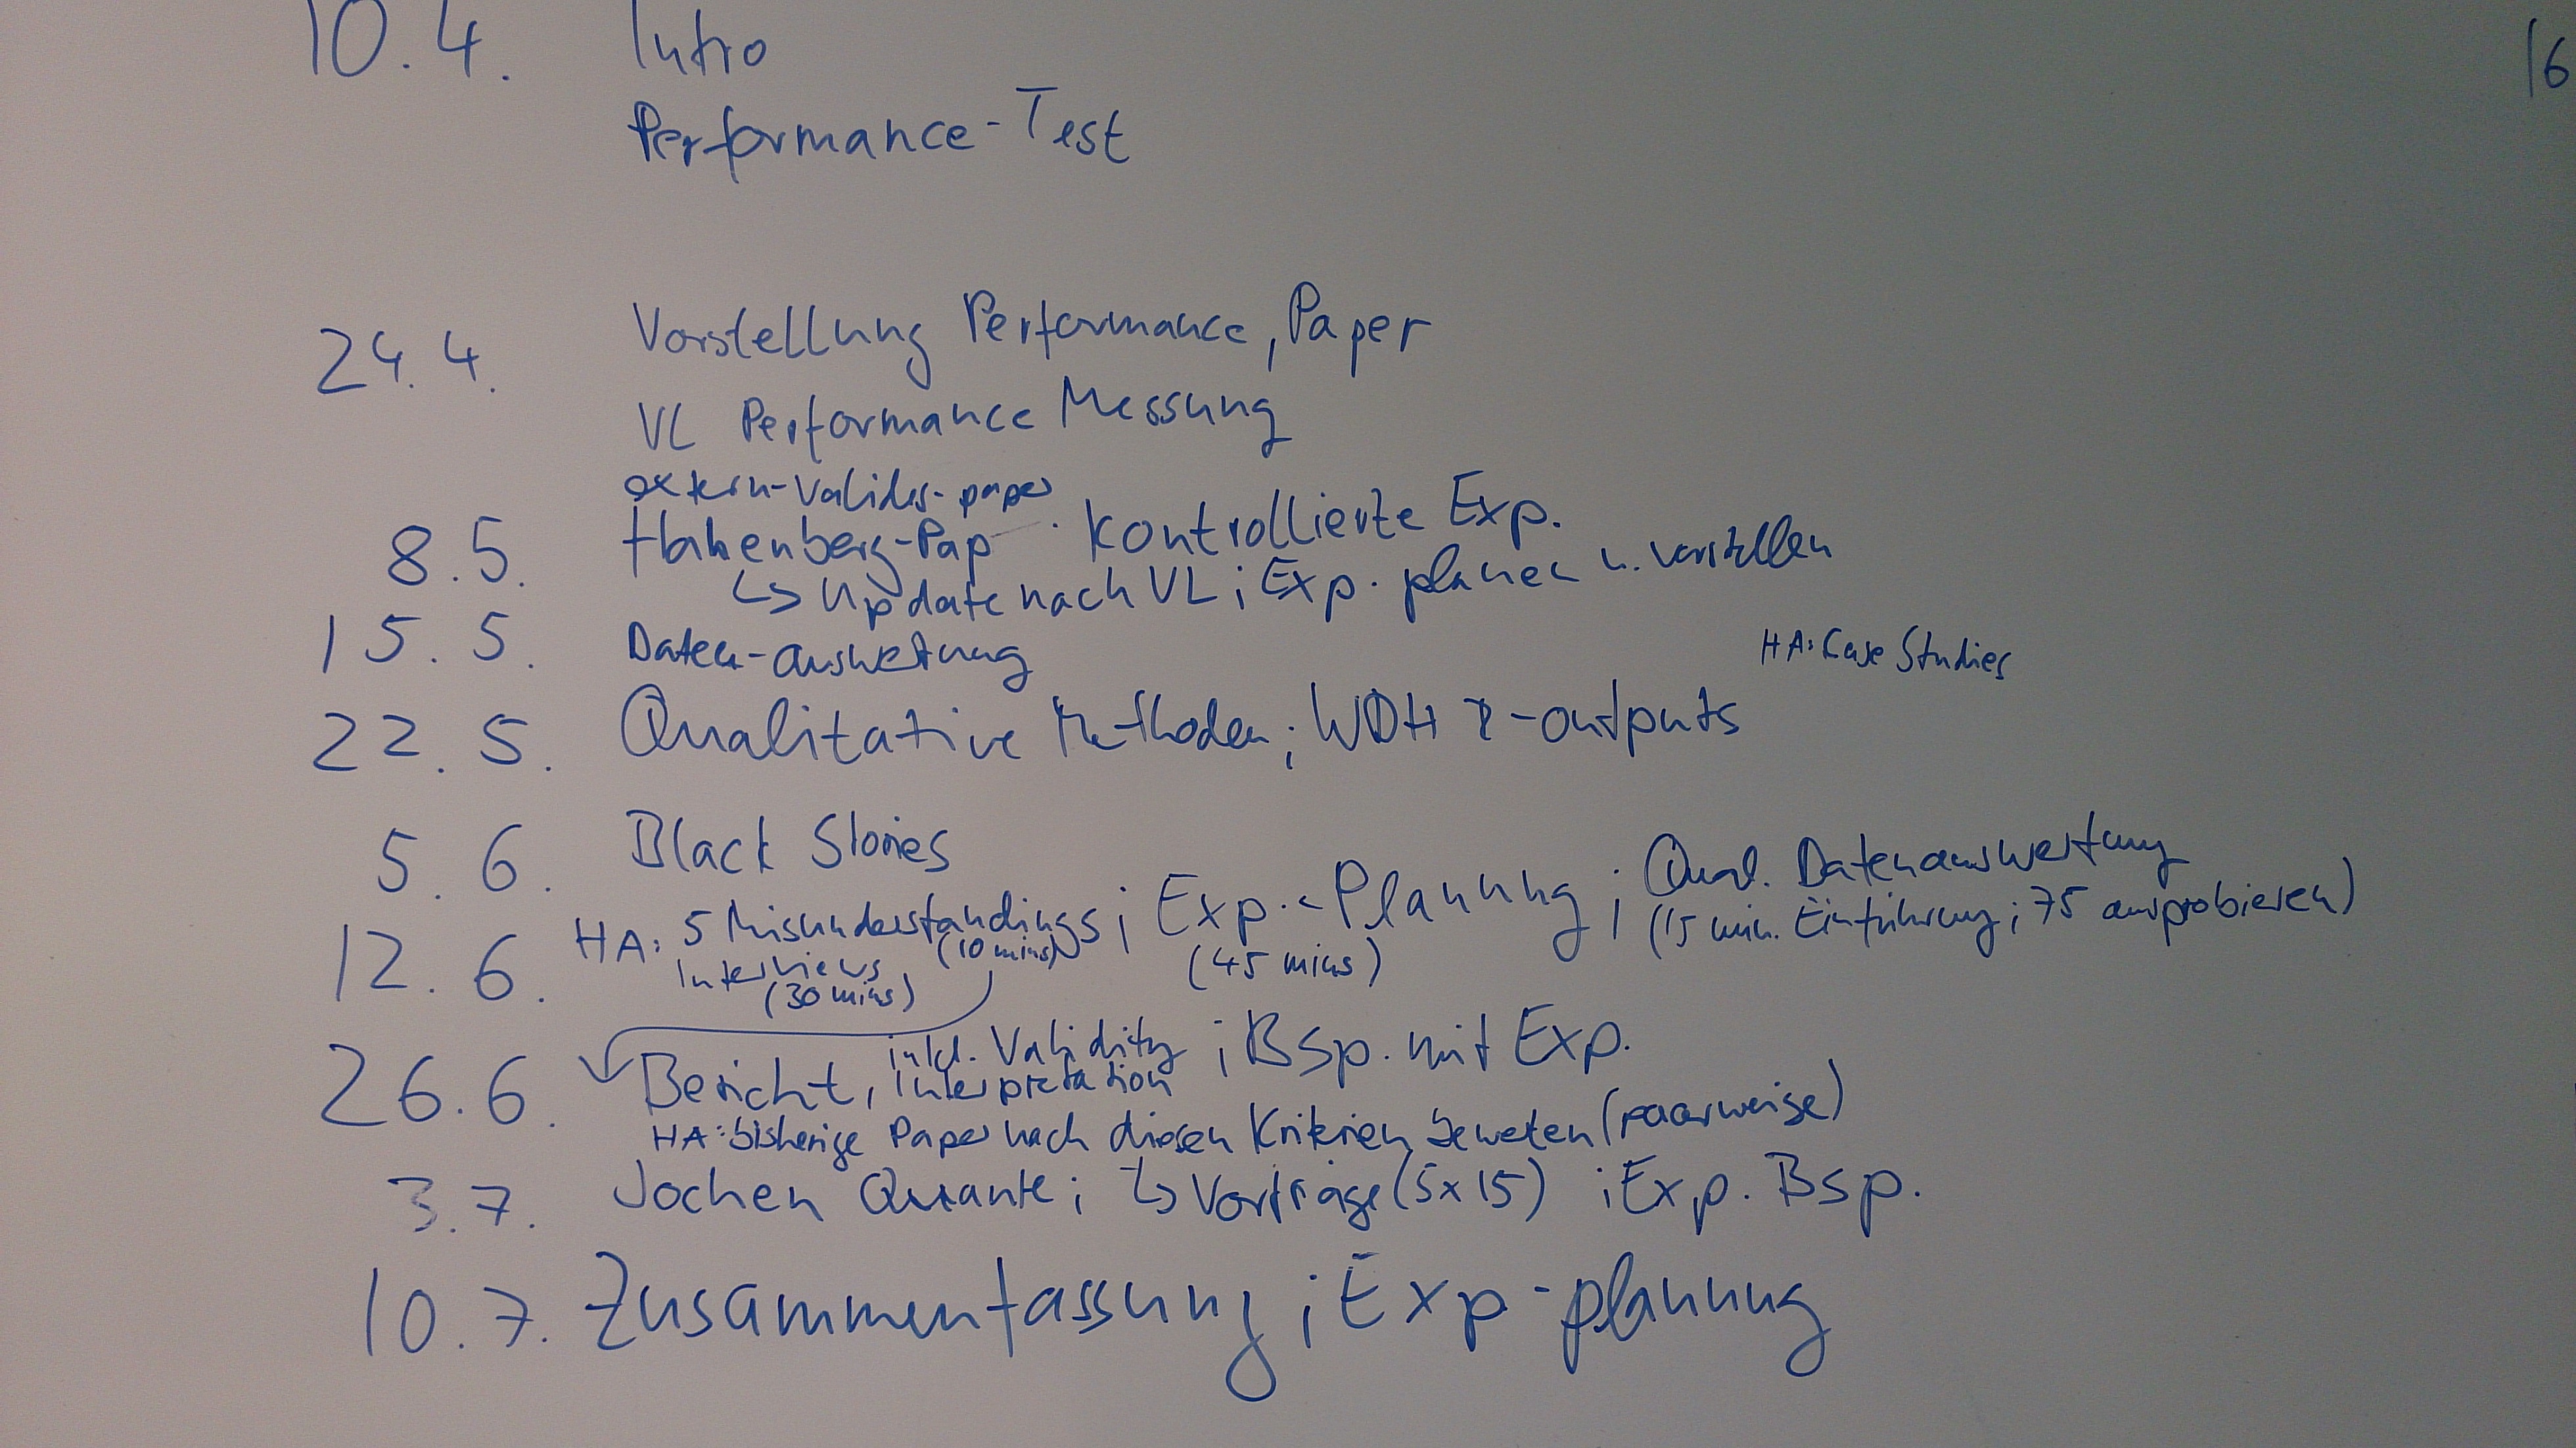 10.4. Intro
16
Performance-Test
24.4. Vorstellung Performance, Paper
VL Performance Messung
extern-Validis-paper
8.5. Hahenberg-Pap. Kontrollierte Exp.
↳ Update nach VL; Exp. planen u. vorstellen
15.5. Daten-auswertung
HA: Case Studies
22.5. Qualitative Methoden; WDH -outputs
5.6. Black Stories
12.6. HA: 5 Misunderstandings; Exp.-Planung; Qual. Datenauswertung
Interviews (10 mins) (45 mins) (15 min. Einführung; 75 ausprobieren)
(30 mins)
inkl. Validity ; Bsp. mit Exp.
26.6. Bericht, Interpretation
HA: bisherige Paper nach diesen Kriterien bewerten (paarweise)
3.7. Jochen Quante; ↳ Vorträge (5x15) ; Exp. Bsp.
10.7. Zusammenfassung; Exp-planung